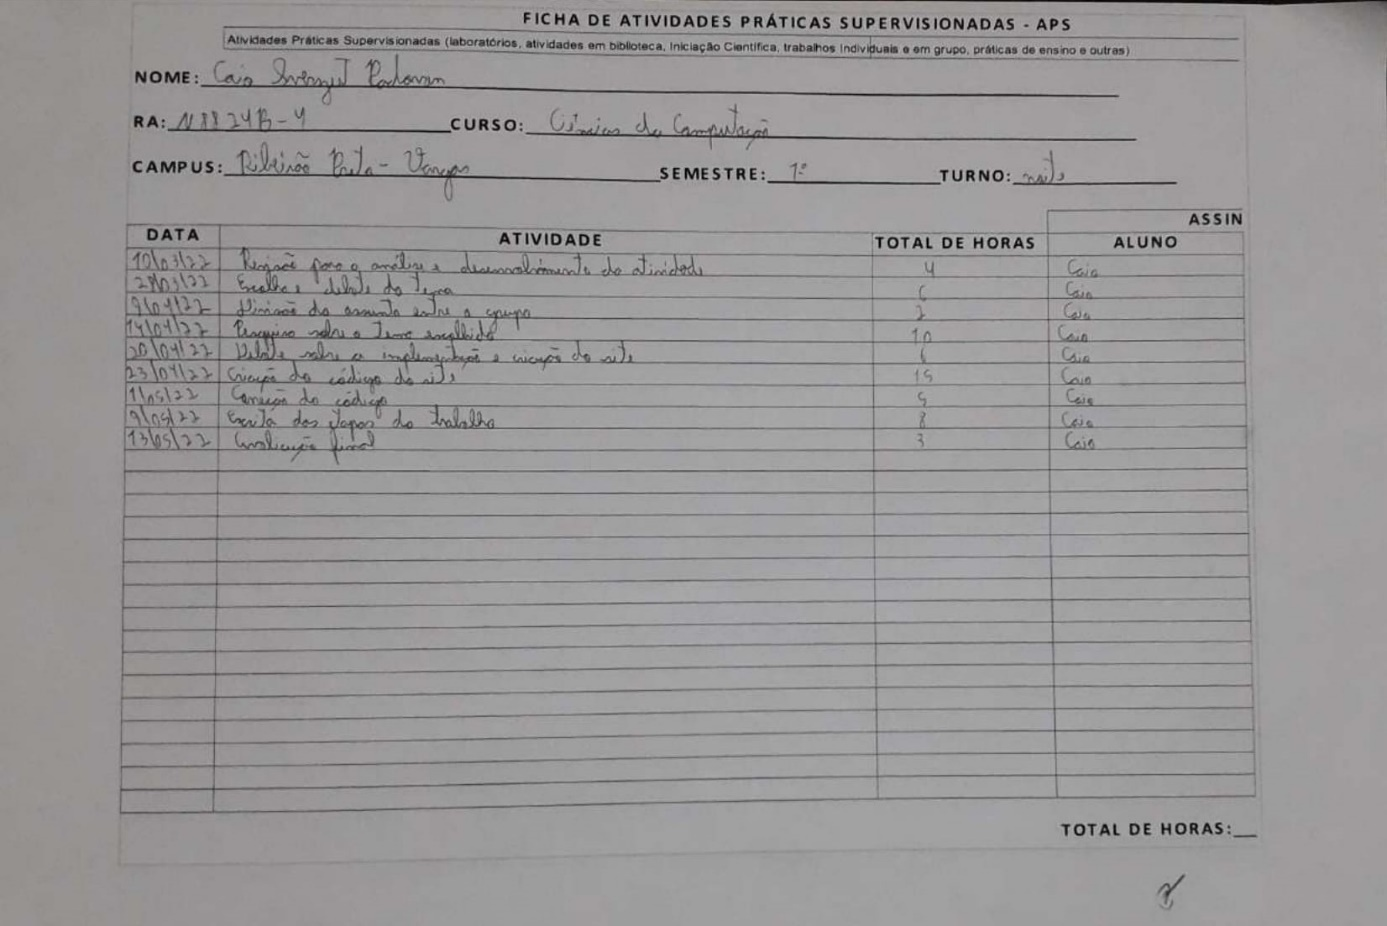 FICHA DE ATIVIDADES PRÁTICAS SUPERVISIONADAS - APS
Atividades Práticas Supervisionadas (laboratórios, atividades em biblioteca, Iniciação Científica, trabalhos Individuais e em grupo, práticas de ensino e outras)
NOME: Caio
RA: N8824B-4 CURSO: Ciências da Computação
CAMPUS: Ribeirão Preto - Vargas SEMESTRE: 1º TURNO: noite
ASSIN
DATA ATIVIDADE TOTAL DE HORAS ALUNO
10/03/22 Reunião para a análise e desenvolvimento da atividade 4 Caio
28/03/22 Escolha e debate do tema 6 Caio
9/04/22 Divisão do assunto entre o grupo 2 Caio
14/04/22 Pesquisa sobre o tema escolhido 10 Caio
20/04/22 Debate sobre a implementação e criação do site 6 Caio
23/04/22 Criação do código do site 15 Caio
1/05/22 Correção do código 5 Caio
9/05/22 Escrita dos Topos do trabalho 8 Caio
13/05/22 Avaliação final 3 Caio
TOTAL DE HORAS: